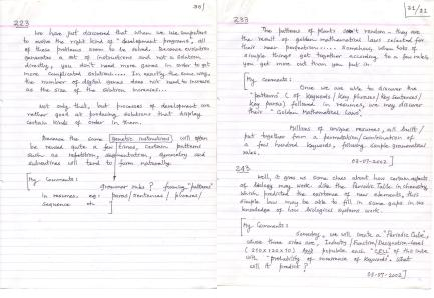 20/
223
We have just discovered that when we use computers
to evolve the right kind of "development programs", all
of these problems seem to be solved. Because evolution
generates a set of instructions and not a solution,
directly, you don't need more genes in order to get
more complicated solutions.... In exactly the same way,
the number of digital genes does not need to increase
as the size of the solution increases...
Not only that, but processes of development are
rather good at producing solutions that display
certain kinds of order in them.
Because the same genetic instructions will often
be reused quite a few times, certain patterns
such as repetition, segmentation, symmetry and
subroutines will tend to form naturally.
My Comments:
grammar rules? forming "patterns"
in resumes. eg: paras/sentences/phrases/
sequence etc
21/21
233
The patterns of plants aren't random - they are
the result of golden mathematical laws selected for
their near perfection..... Somehow, when lots of
simple things get together according to a few rules
you get more out than you put in.
My Comments:
Once we are able to discover the
"patterns" (of keywords/key phrases/key sentences/
key paras) followed in resumes, we may discover
their "Golden Mathematical Laws",
Millions of unique resumes, all built/
put together from a permutation/combination of
a few hundred keywords, following simple grammatical
rules.
03-07-2002
243
Well, it gives us some clues about how certain aspects
of biology may work. Like the Periodic Table in chemistry
which predicted the existence of new elements, this
simple law may be able to fill in some gaps in our
knowledge of how biological systems work.
My Comments:
Someday, we will create a "Periodic Cube",
where three sides are, Industry/Function/Designation-level
(210 x 120 x 10) And populate each "CELL" of the cube
with "probability of occurrence of keywords". What
will it predict?
03-07-2002